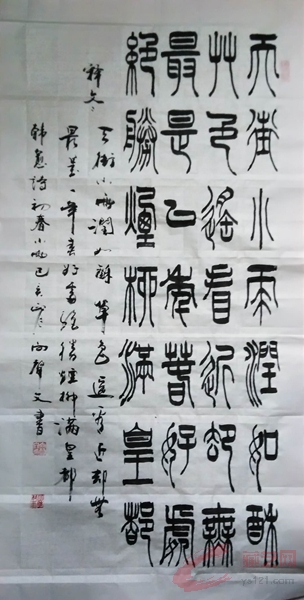 天街小雨潤如酥
艸色遙看近却無
最是一年春好處
絕勝煙柳滿皇都
釋文:
天街小雨潤如酥草色遙看近却無
最是一年春好處絕勝煙柳滿皇都
韓愈詩初春小雨己亥聲文書